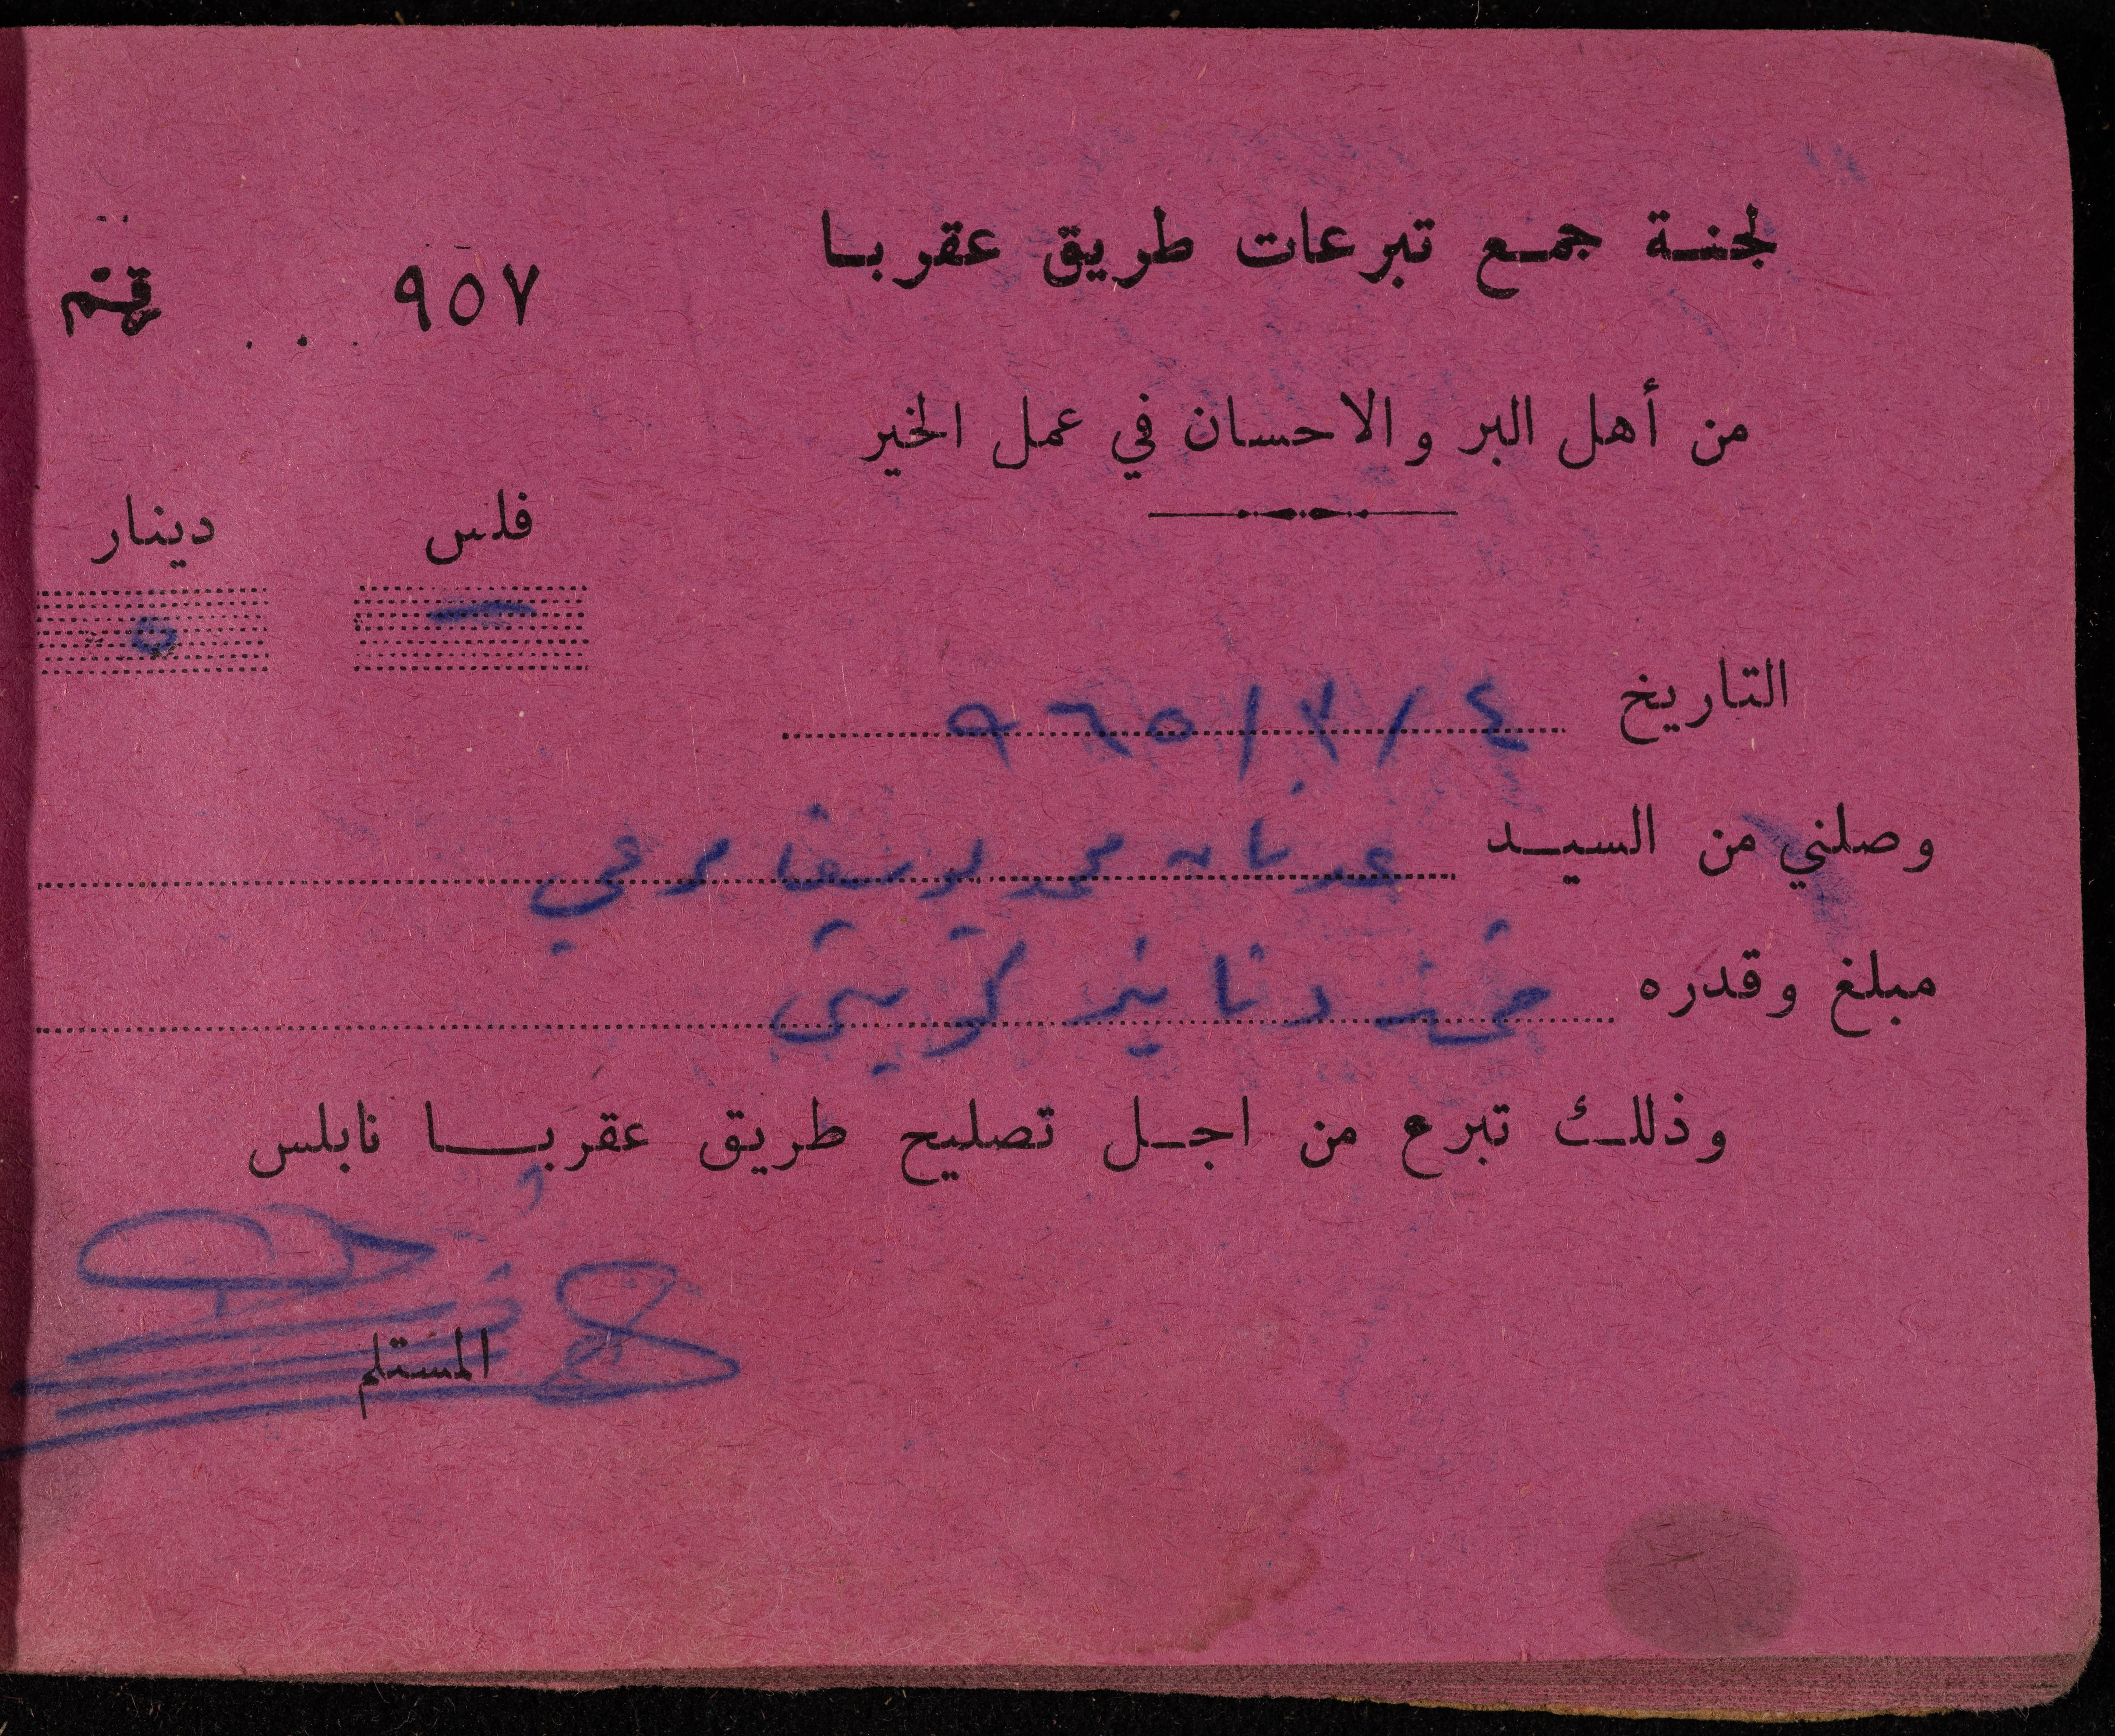 لجنة جمع تبرعات طريق عقربا
٩٥٧
من أهل البر والاحسان في عمل الخير
فلس دينار
— ٥
التاريخ ٤ / ٣ / ٩٦٥
وصلني من السيد عدنان محمد يوسف مرعي
مبلغ وقدره خمسة دنانير كويتي
وذلك تبرع من اجل تصليح طريق عقربا نابلس
المستلم